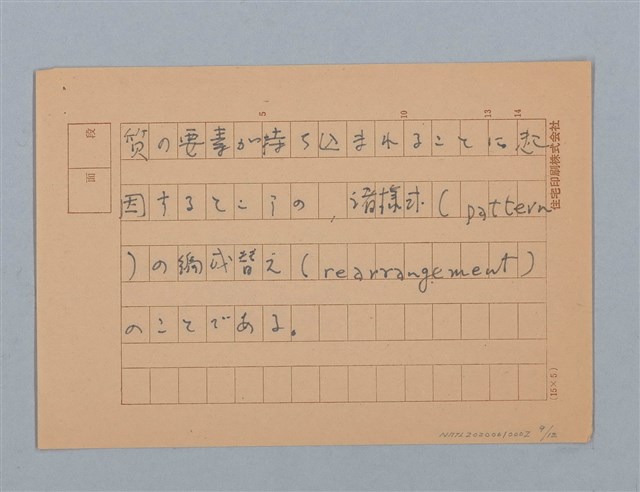 段
面
5
10
13
14
質の要素が持ち込まれることに起
因するところの、諸様式(pattern
)の編成替え(rearrangement)
のことである。
住宅印刷株式会社
(15×5)
9/12